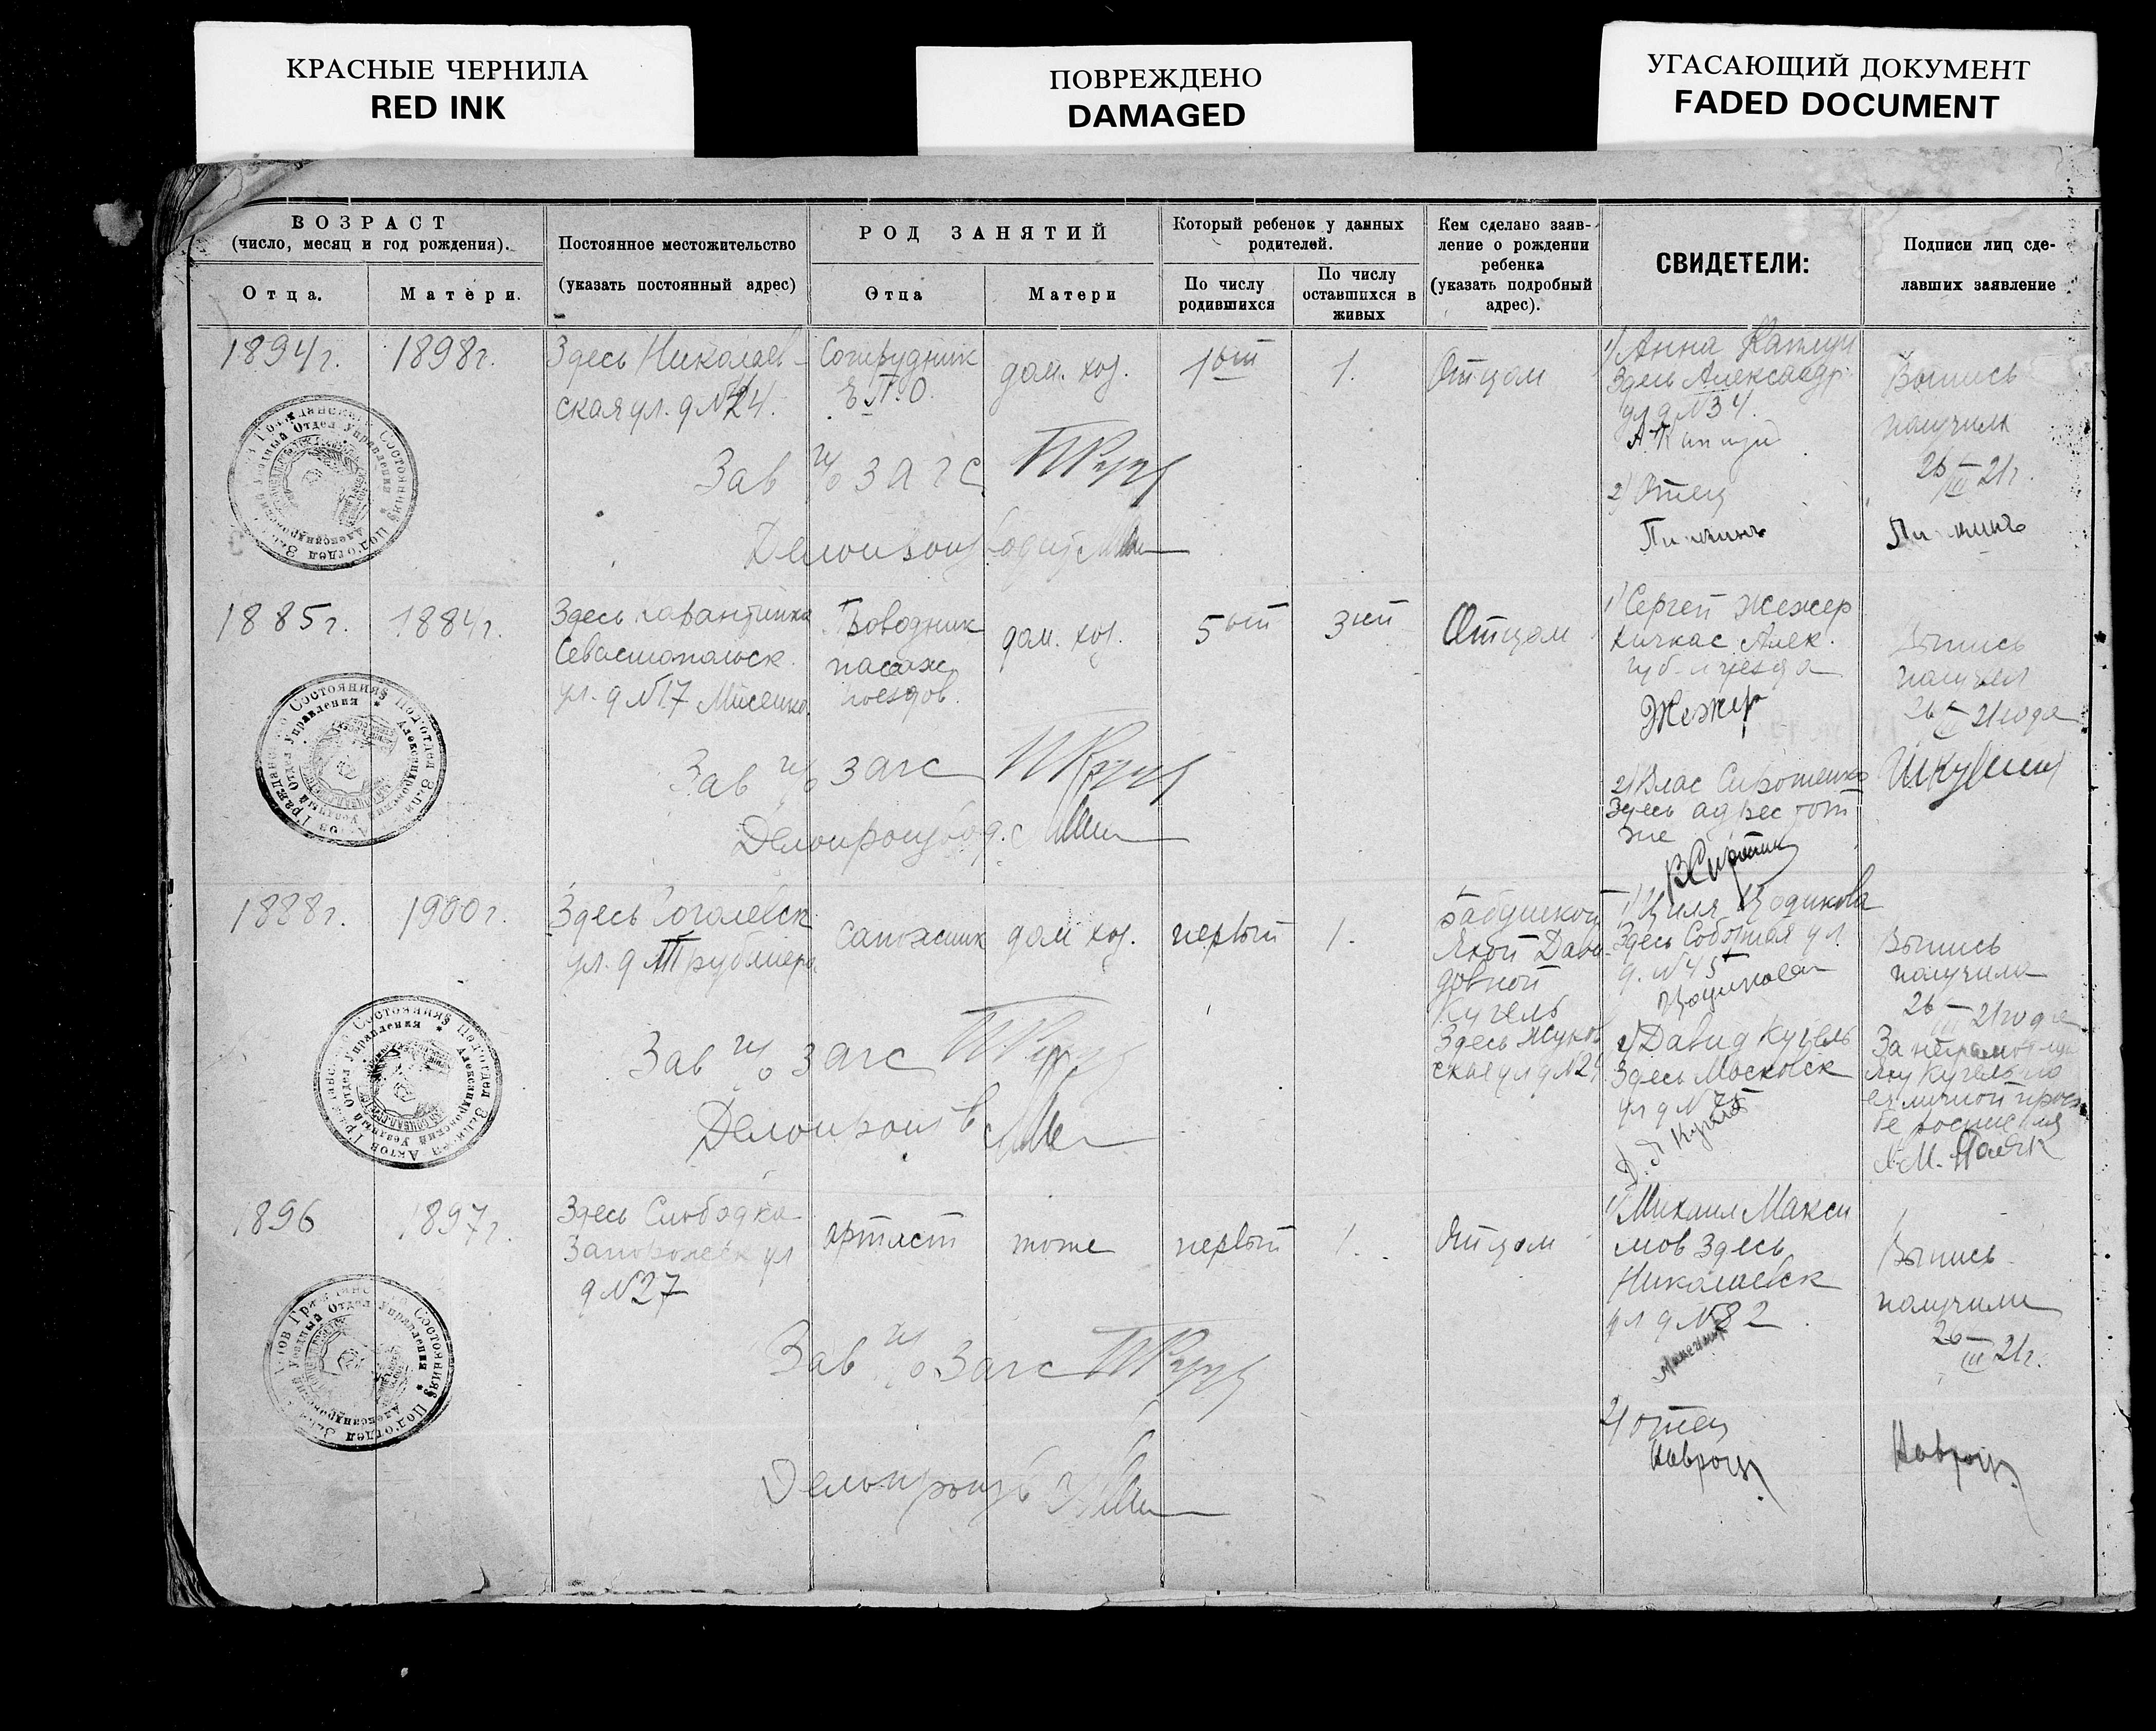 КРАСНЫЕ ЧЕРНИЛА
RED INK
ПОВРЕЖДЕНО
DAMAGED
УГАСАЮЩИЙ ДОКУМЕНТ
FADED DOCUMENT
ВОЗРАСТ
(число, месяц и год рождения).
Отца.
Матери.
Постоянное местожительство
(указать постоянный адрес)
РОД ЗАНЯТИЙ
Отца
Матери
Который ребенок у данных
родителей.
По числу
родившихся
По числу
оставшихся в
живых
Кем сделано заяв-
ление о рождении
ребенка
(указать подробный
адрес).
СВИДЕТЕЛИ:
Подписи лиц сде-
лавших заявление
1894г.
1898г.
Здесь Николаев-
ская ул. д №24.
Сотрудник
Е.П.О.
дом. хоз.
1ый
1.
Отцом
1) Анна
Здесь Александр.
ул д №34.
2) Отец
Выпись
получил
26/III 21г.
Зав п/о загс
1885г.
1884г.
Здесь карантинка
Севастопольск.
ул. д №17 Мисенко.
Проводник
пасаж.
поездов.
дом. хоз.
5ый
3ий
Отцом
1) Сергей Жежер
Кичкас Алек.
губ. и уезда
Жежер
2) Влас Сиротенко
Здесь адрес тот
же
Выпись
получил
26 21 года
Зав п/о загс
1888г.
1900г.
Здесь Гоголевск
ул. д
сапожник
дом хоз.
первый
1.
бабушкой
Яхой Дави-
довной
Кугель
Здесь Жуков
ская ул д №24
1) Циля Цодикова
Здесь Соборная ул.
д. №45
2) Давид Кугель
Здесь Московск
ул д №
Выпись
получила
26 21 года
За неграмотную
Яху Кугель по
ея личной прось
бе росписался
М.
Зав п/о загс
Делопроизв
1896
1897г.
Здесь Слободка
Запорожск ул
д №27
артист
тоже
первый
1.
Отцом
1) Михаил Макси
мов Здесь
Николаевск
ул д №82
2) отец
Навроц
Выпись
получили
26/III 21г.
Навроц
Зав п/о загс
Делопроизв